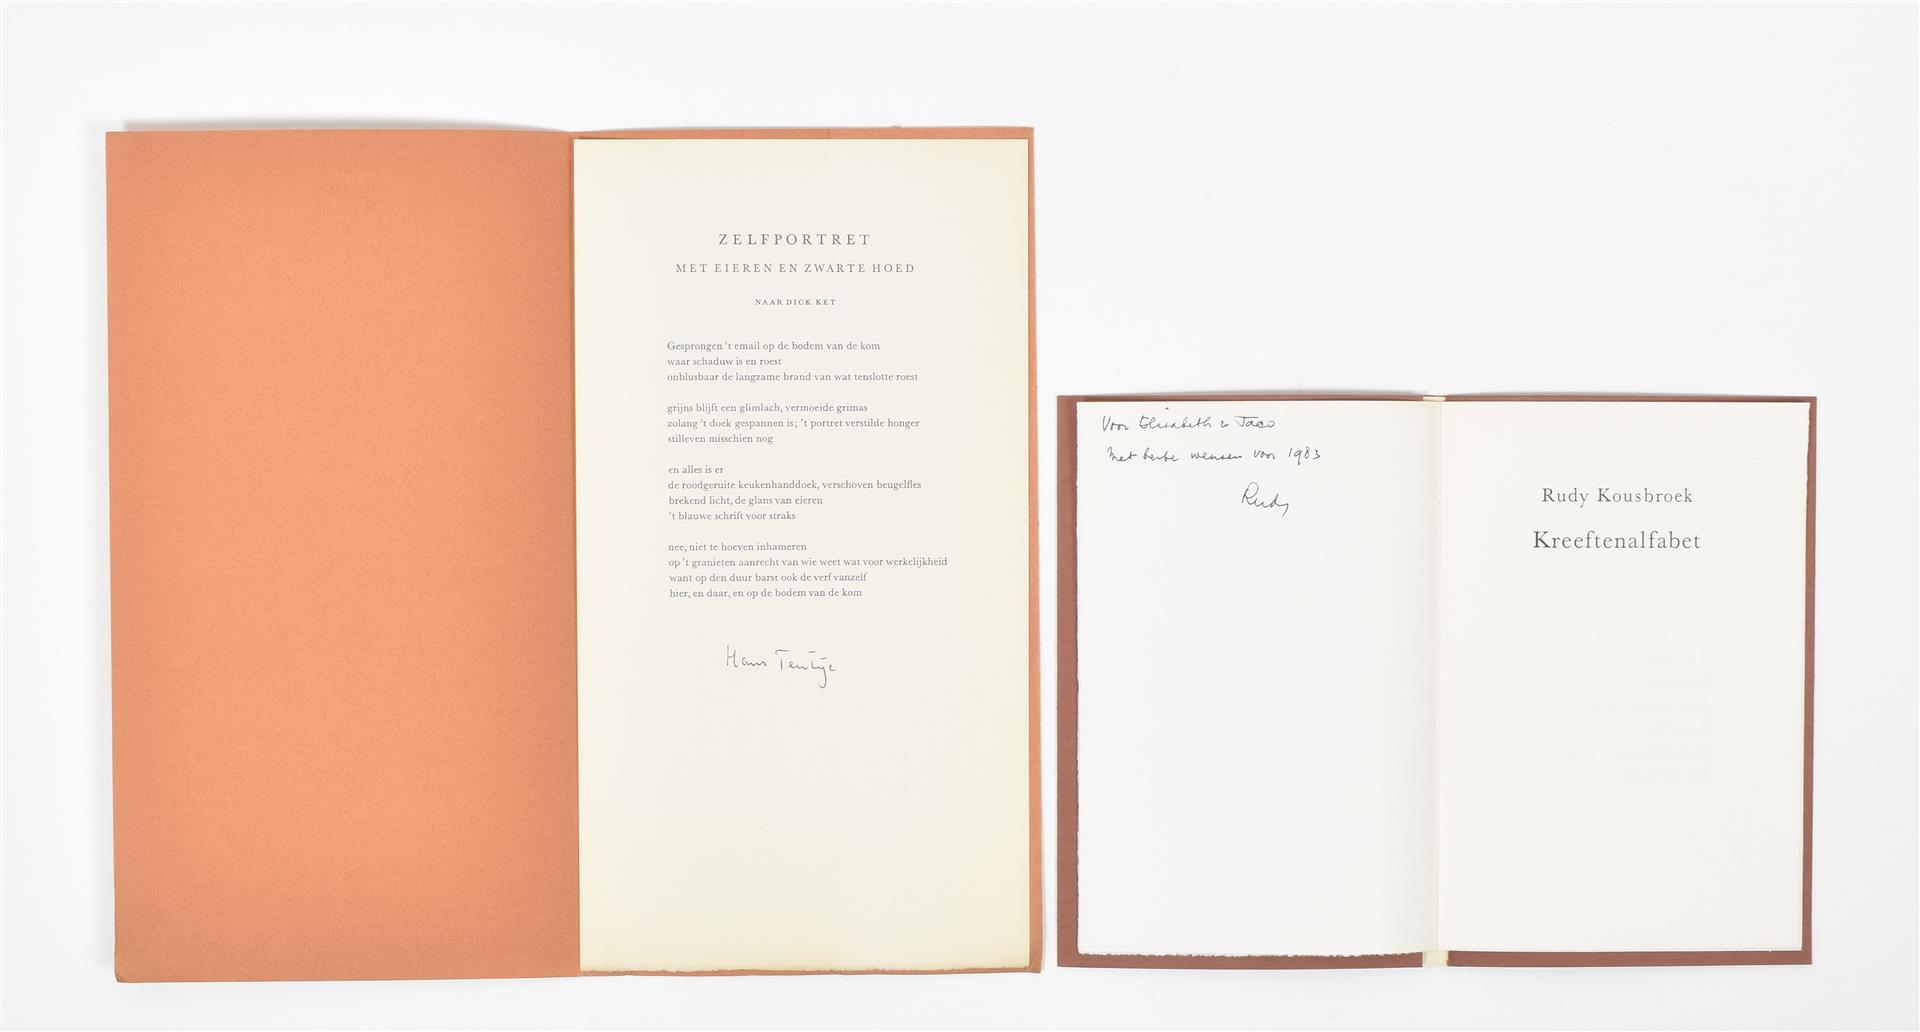 ZELFPORTRET
MET EIEREN EN ZWARTE HOED
NAAR DICK KET
Gesprongen 't email op de bodem van de kom
waar schaduw is en roest
onblusbaar de langzame brand van wat tenslotte roest
grijns blijft een glimlach, vermoeide grimas
zolang 't doek gespannen is; 't portret verstilde honger
stilleven misschien nog
en alles is er
de roodgeruite keukenhanddoek, verschoven beugelfles
brekend licht, de glans van eieren
't blauwe schrift voor straks
nee, niet te hoeven inhameren
op 't granieten aanrecht van wie weet wat voor werkelijkheid
want op den duur barst ook de verf vanzelf
hier, en daar, en op de bodem van de kom
Hans Tentije
Voor Elisabeth & Taco
Met beste wensen voor 1983
Rudy
Rudy Kousbroek
Kreeftenalfabet